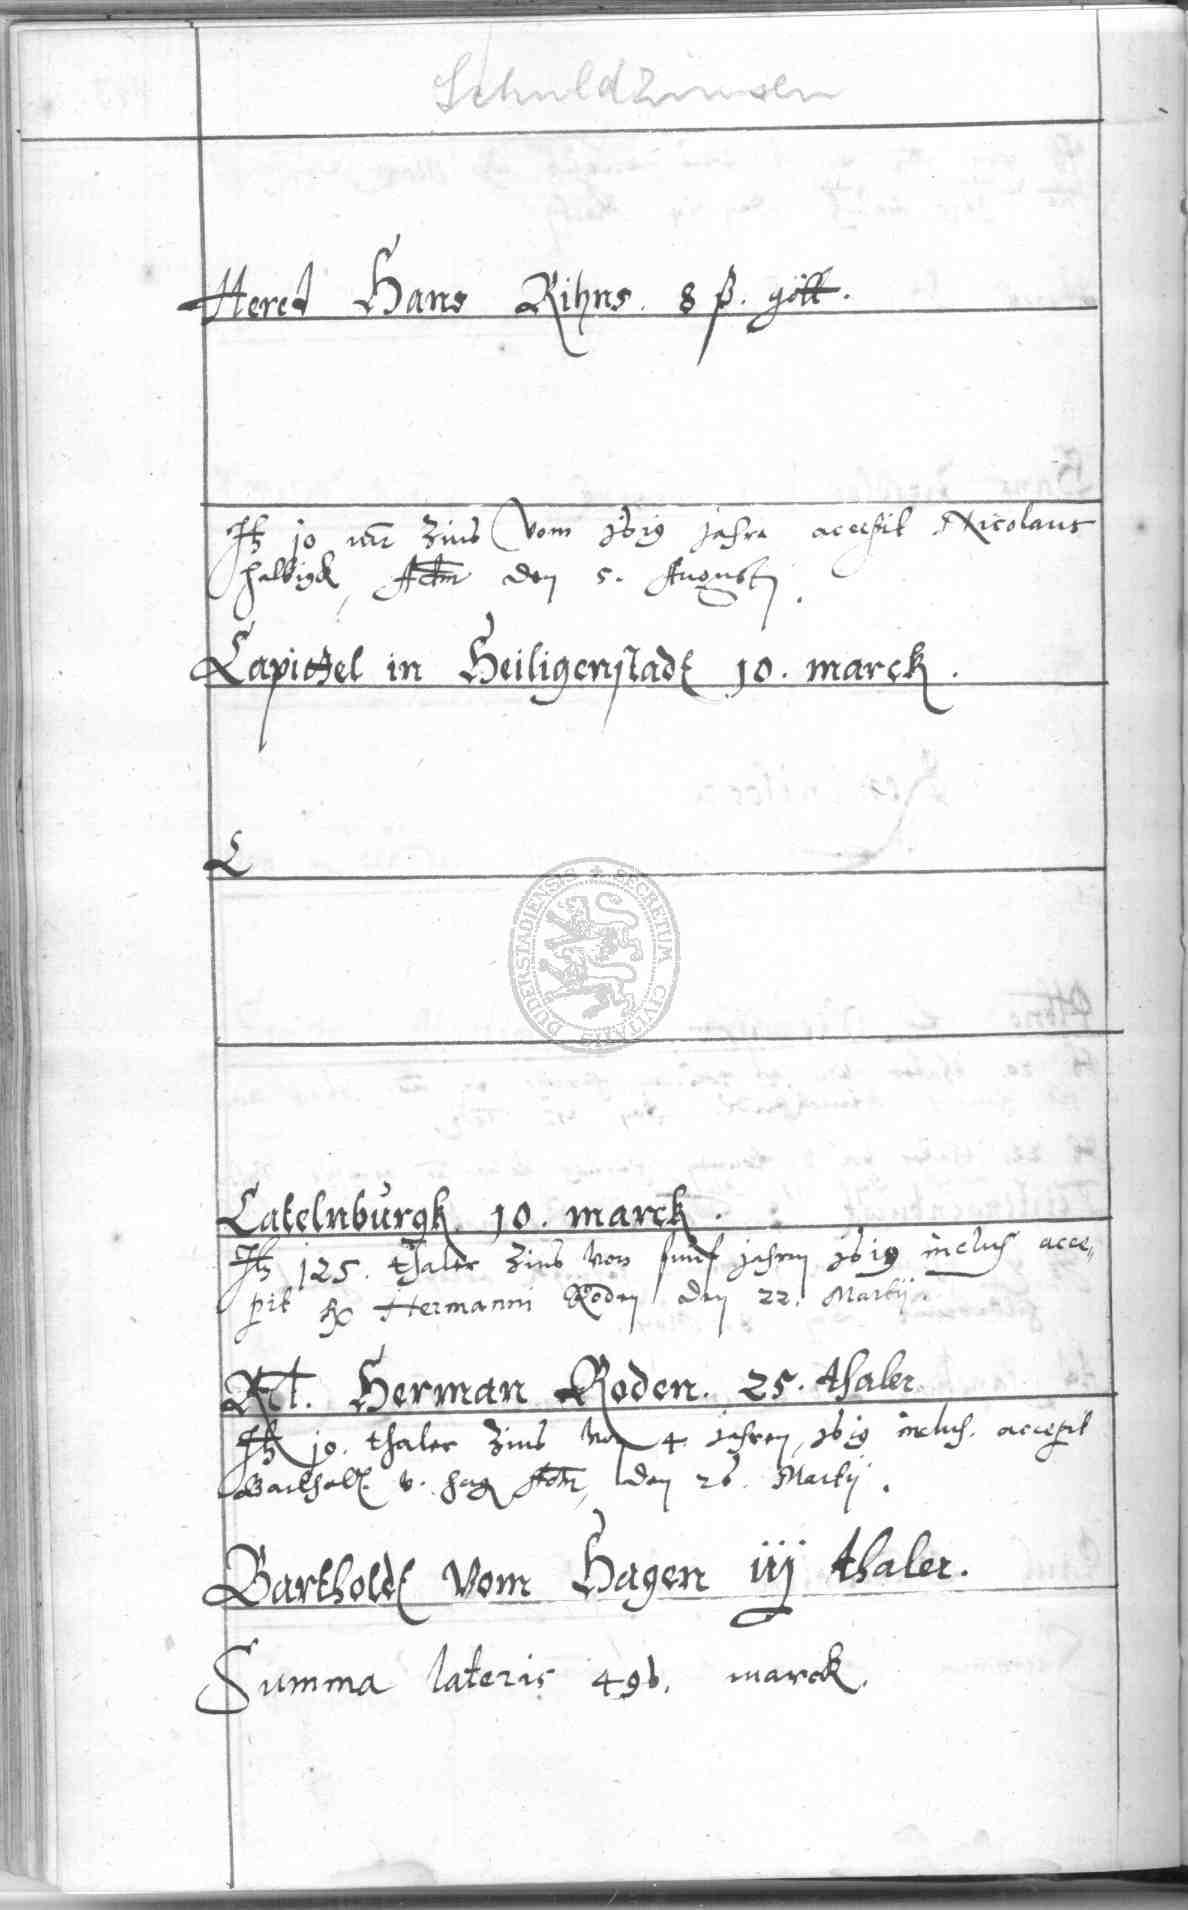 Schuldzinsen
Hered Hans Rihns. 8 ß. gött.
It 10 mr Zins vom 1619 jahre accepit Nicolaus
halbigk, Actm den 5. Augusti.
Capittel in Heiligenstadt 10. marck.
C
DUDERSTADIENSIS ✶ SECRETUM CIVITATIS
Catelnburgk 10. marck.
It 125. thaler Zins von funf jahren 1619 inclus acce„
pit Hermanni Roden den 22. Martij.
Rel. Herman Roden. 25. thaler
It 10. thaler Zins von 4 jahren, 1619 inclus. accepit
Barthold v. Hagen Actm, den 26. Martij.
Bartholdt vom Hagen iij thaler.
Summa lateris 496. marck.